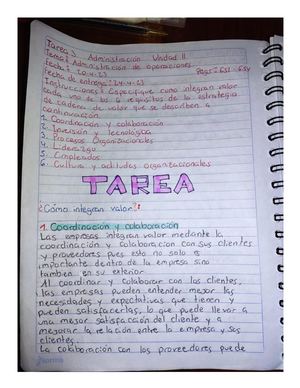 Tarea 3 Administración Unidad II
Tema: Administración de operaciones.
Fecha: 20-4-23 Pags: 651-654
Fecha de entrega: 24-4-23
Instrucciones: Especifique como integran valor
cada uno de los 6 requisitos de la estrategia
de cadena de valor que se describen a
continuación
1. Coordinación y colaboración
2. Inversión y Tecnológica
3. Procesos Organizacionales
4. Liderazgo
5. Empleados
6. Cultura y actitudes organizacionales
TAREA
¿Cómo integran valor?
1. Coordinación y colaboración
Las empresas integran valor mediante la
coordinación y colaboración con sus clientes
y proveedores pues esto no solo es
importante dentro de la empresa sino
también en su exterior
Al coordinar y colaborar con los clientes,
las empresas pueden entender mejor las
necesidades y expectativas que tienen y
pueden satisfacerlas, lo que puede llevar a
una mejor satisfacción del cliente y a
mejorar la relación entre la empresa y sus
clientes.
La colaboración con los proveedores puede